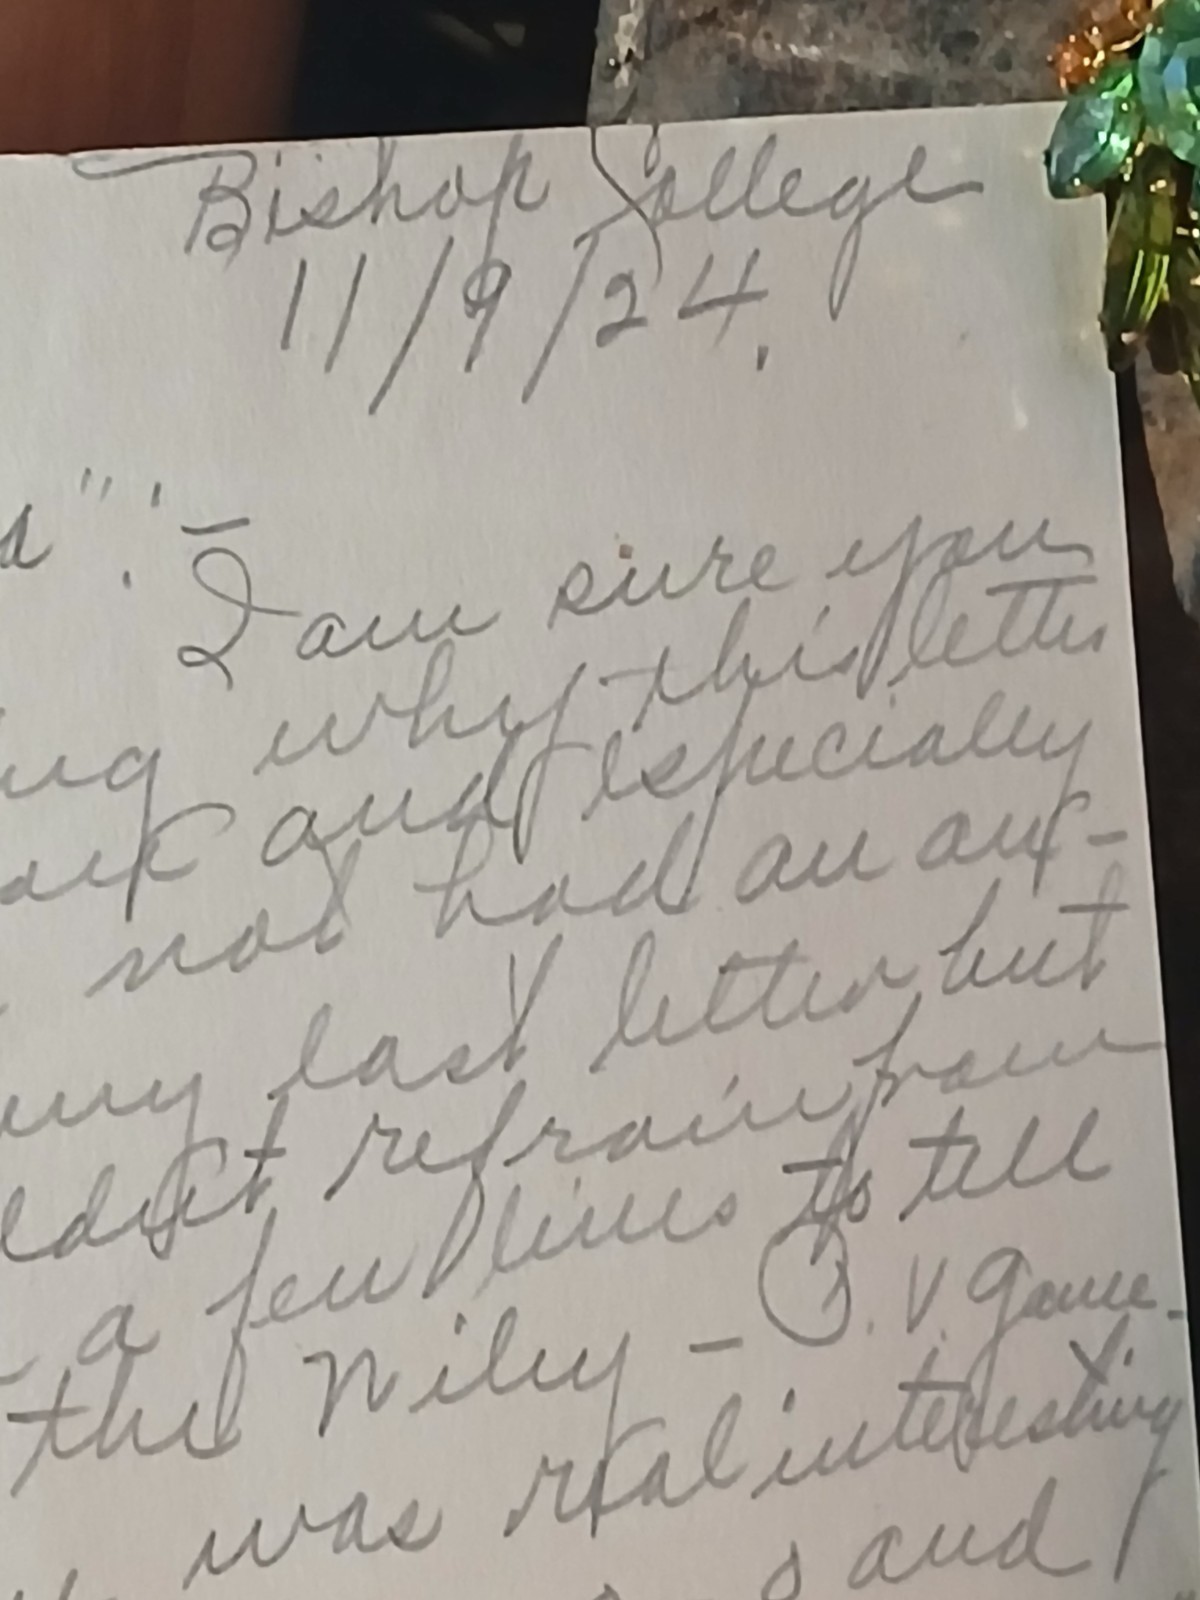 Bishop College
11/9/24.
":-
I am sure you
why this letter
and especially
not had an ans-
my last letter but
refrain from
a few lines to tell
the Wiley - P. V game.
was real interesting
and